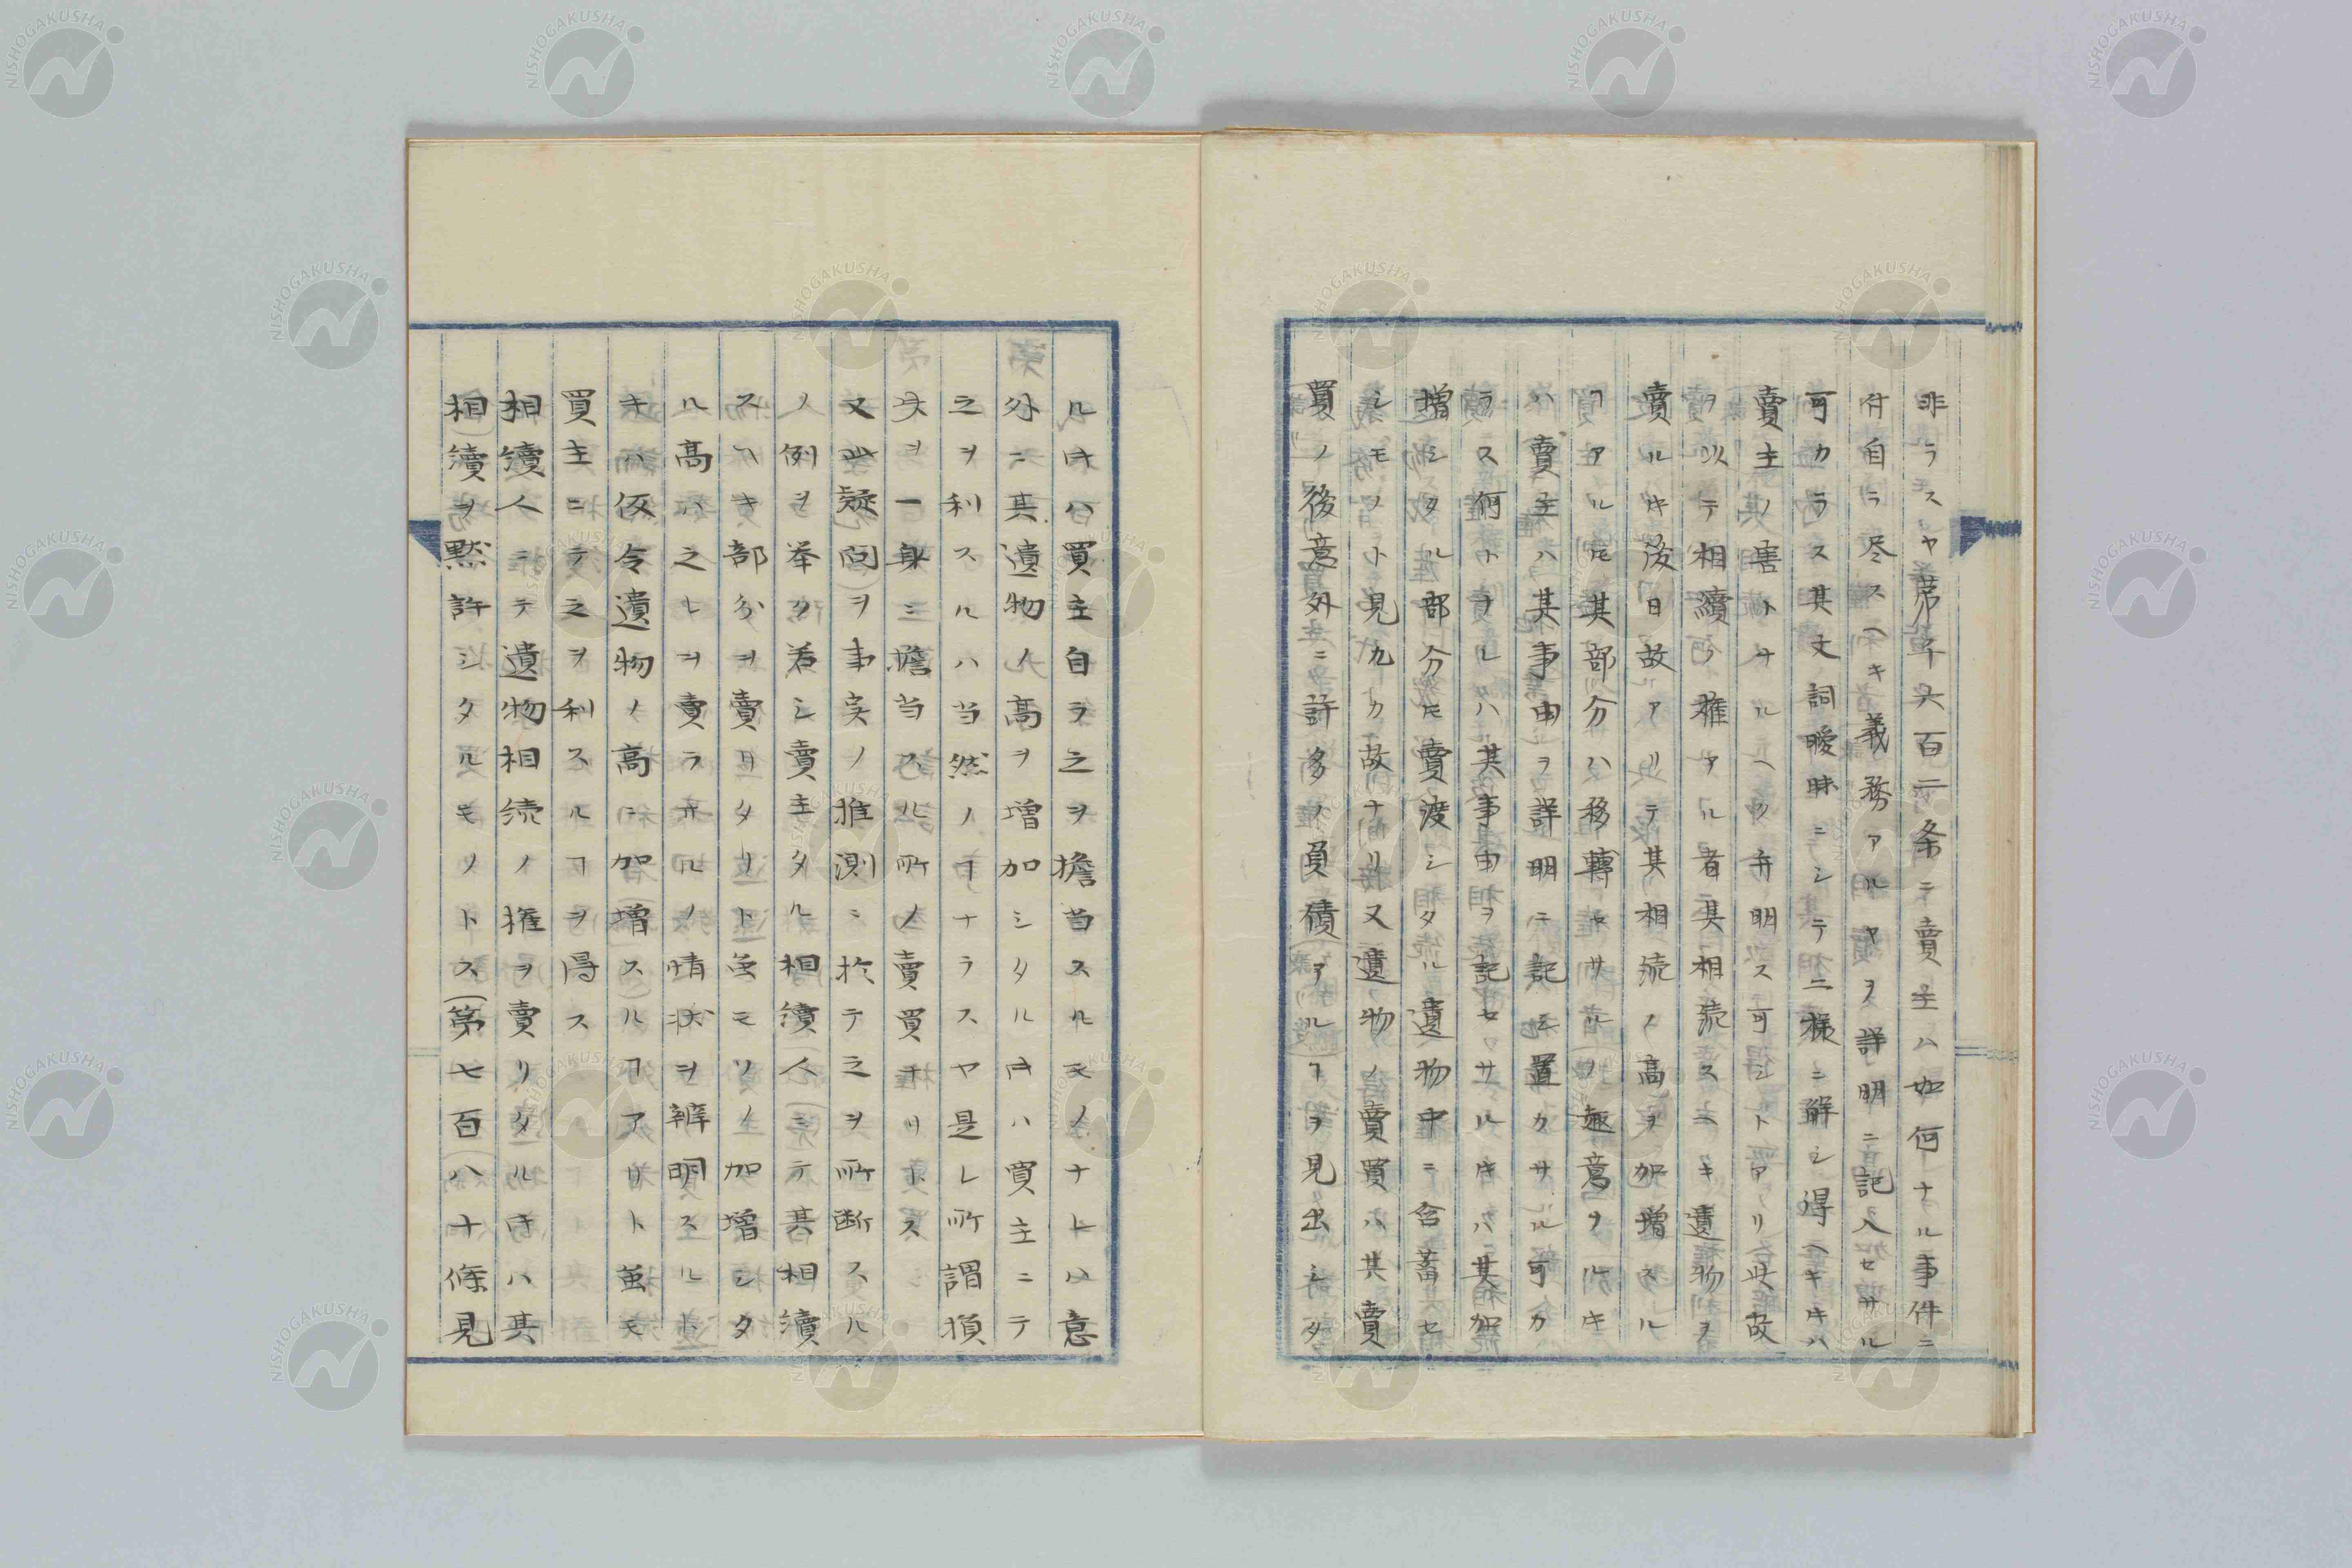 非ラスヤ蓆千六百二条ニ賣主ハ如何ナル事件ニ
付自ラ尽スヘキ義務アルヤヲ詳明ニ記入セサル
可カラス其文詞曖昧ニシテ二様ニ解シ得ヘキ𪜈ハ
賣主ノ害トナルヘク弁明ス可シトアリ此故
ヲ以テ相續ノ権アル者其相続スヘキ遺物ヲ
賣ル𪜈後日故アリテ其相続ノ高ヲ加増スル
ヿアル𪜈其部分ハ移轉セサルノ趣意ヲルキ
ハ賣主ハ其事由ヲ詳明ニ記シ置カサル可カ
ラス何トナレハ其事由ヲ記セサルキハ其加
増シタル部分𪜈賣渡シタル遺物中ニ含蓄セ
シモノト見九カ故ナリ又遺物ノ賣買ハ其賣
買ノ後意外ニ許多ノ負債アルヿヲ見出シタ
ルキハ買主自ラ之ヲ擔当スルモノナレハ意
外ニ其遺物ノ高ヲ増加シタルキハ買主ニテ
之ヲ利スルハ当然ノヿナラスヤ是レ所謂損
失ヲ一身ニ擔当スル所ノ賣買ナリトス
又此疑問ヲ事実ノ推測ニ於テ之ヲ所断スル
ノ例ヲ挙ク若シ賣主タル相續人ニテ其相續
スヘキ部分ヲ賣リタリト雖モソノ加増シタ
ル高ハ之レヲ賣ラサルノ情状ヲ辨明スルト
キハ仮令遺物ノ高ニ加増スルヿアリト雖モ
買主ニテ之ヲ利スルヿヲ得ス
相續人ニテ遺物相続ノ権ヲ賣リタルキハ其
相續ヲ黙許シタルモノトス(第七百八十條見
NISHOGAKUSHA